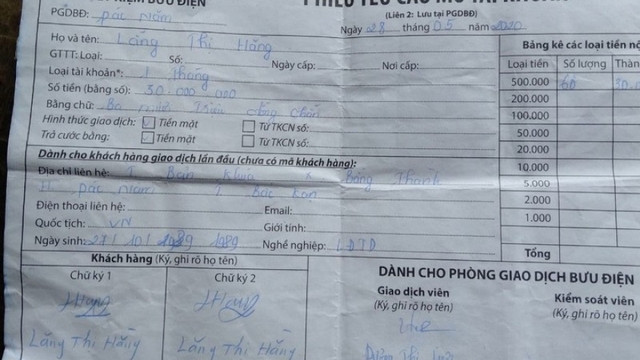 KIỆM BƯU ĐIỆN
PHIẾU YÊU CẦU MỞ TÀI KHOẢN
PGDBĐ: Pác Nặm
(Liên 2: Lưu tại PGDBĐ)
Ngày 28 tháng 05 năm 2020
Họ và tên: Lăng Thị Hằng
GTTT: Loại: Số: Ngày cấp: Nơi cấp:
Loại tài khoản*: 1 tháng
Số tiền (bằng số): 30.000.000
Bằng chữ: Ba mươi triệu đồng chẵn
Hình thức giao dịch: Tiền mặt Từ TKCN số:
Trả cước bằng: Tiền mặt Từ TKCN số:
Dành cho khách hàng giao dịch lần đầu (chưa có mã khách hàng):
Địa chỉ liên hệ: T. Bản X Bằng Thành
H. Pác Nặm T. Bắc Kạn
Điện thoại liên hệ: Email:
Quốc tịch: VN Giới tính:
Ngày sinh: 27/10/1989 1989 Nghề nghiệp: LĐTD
Bảng kê các loại tiền
Loại tiền Số lượng Thàn
500.000 60 30.0
200.000
100.000
50.000
20.000
10.000
5.000
2.000
1.000
Tổng
Khách hàng (Ký, ghi rõ họ tên)
Chữ ký 1 Chữ ký 2
Hằng Hằng
Lăng Thị Hằng Lăng Thị Hằng
DÀNH CHO PHÒNG GIAO DỊCH BƯU ĐIỆN
Giao dịch viên Kiểm soát viên
(Ký, ghi rõ họ tên) (Ký, ghi rõ họ tên)